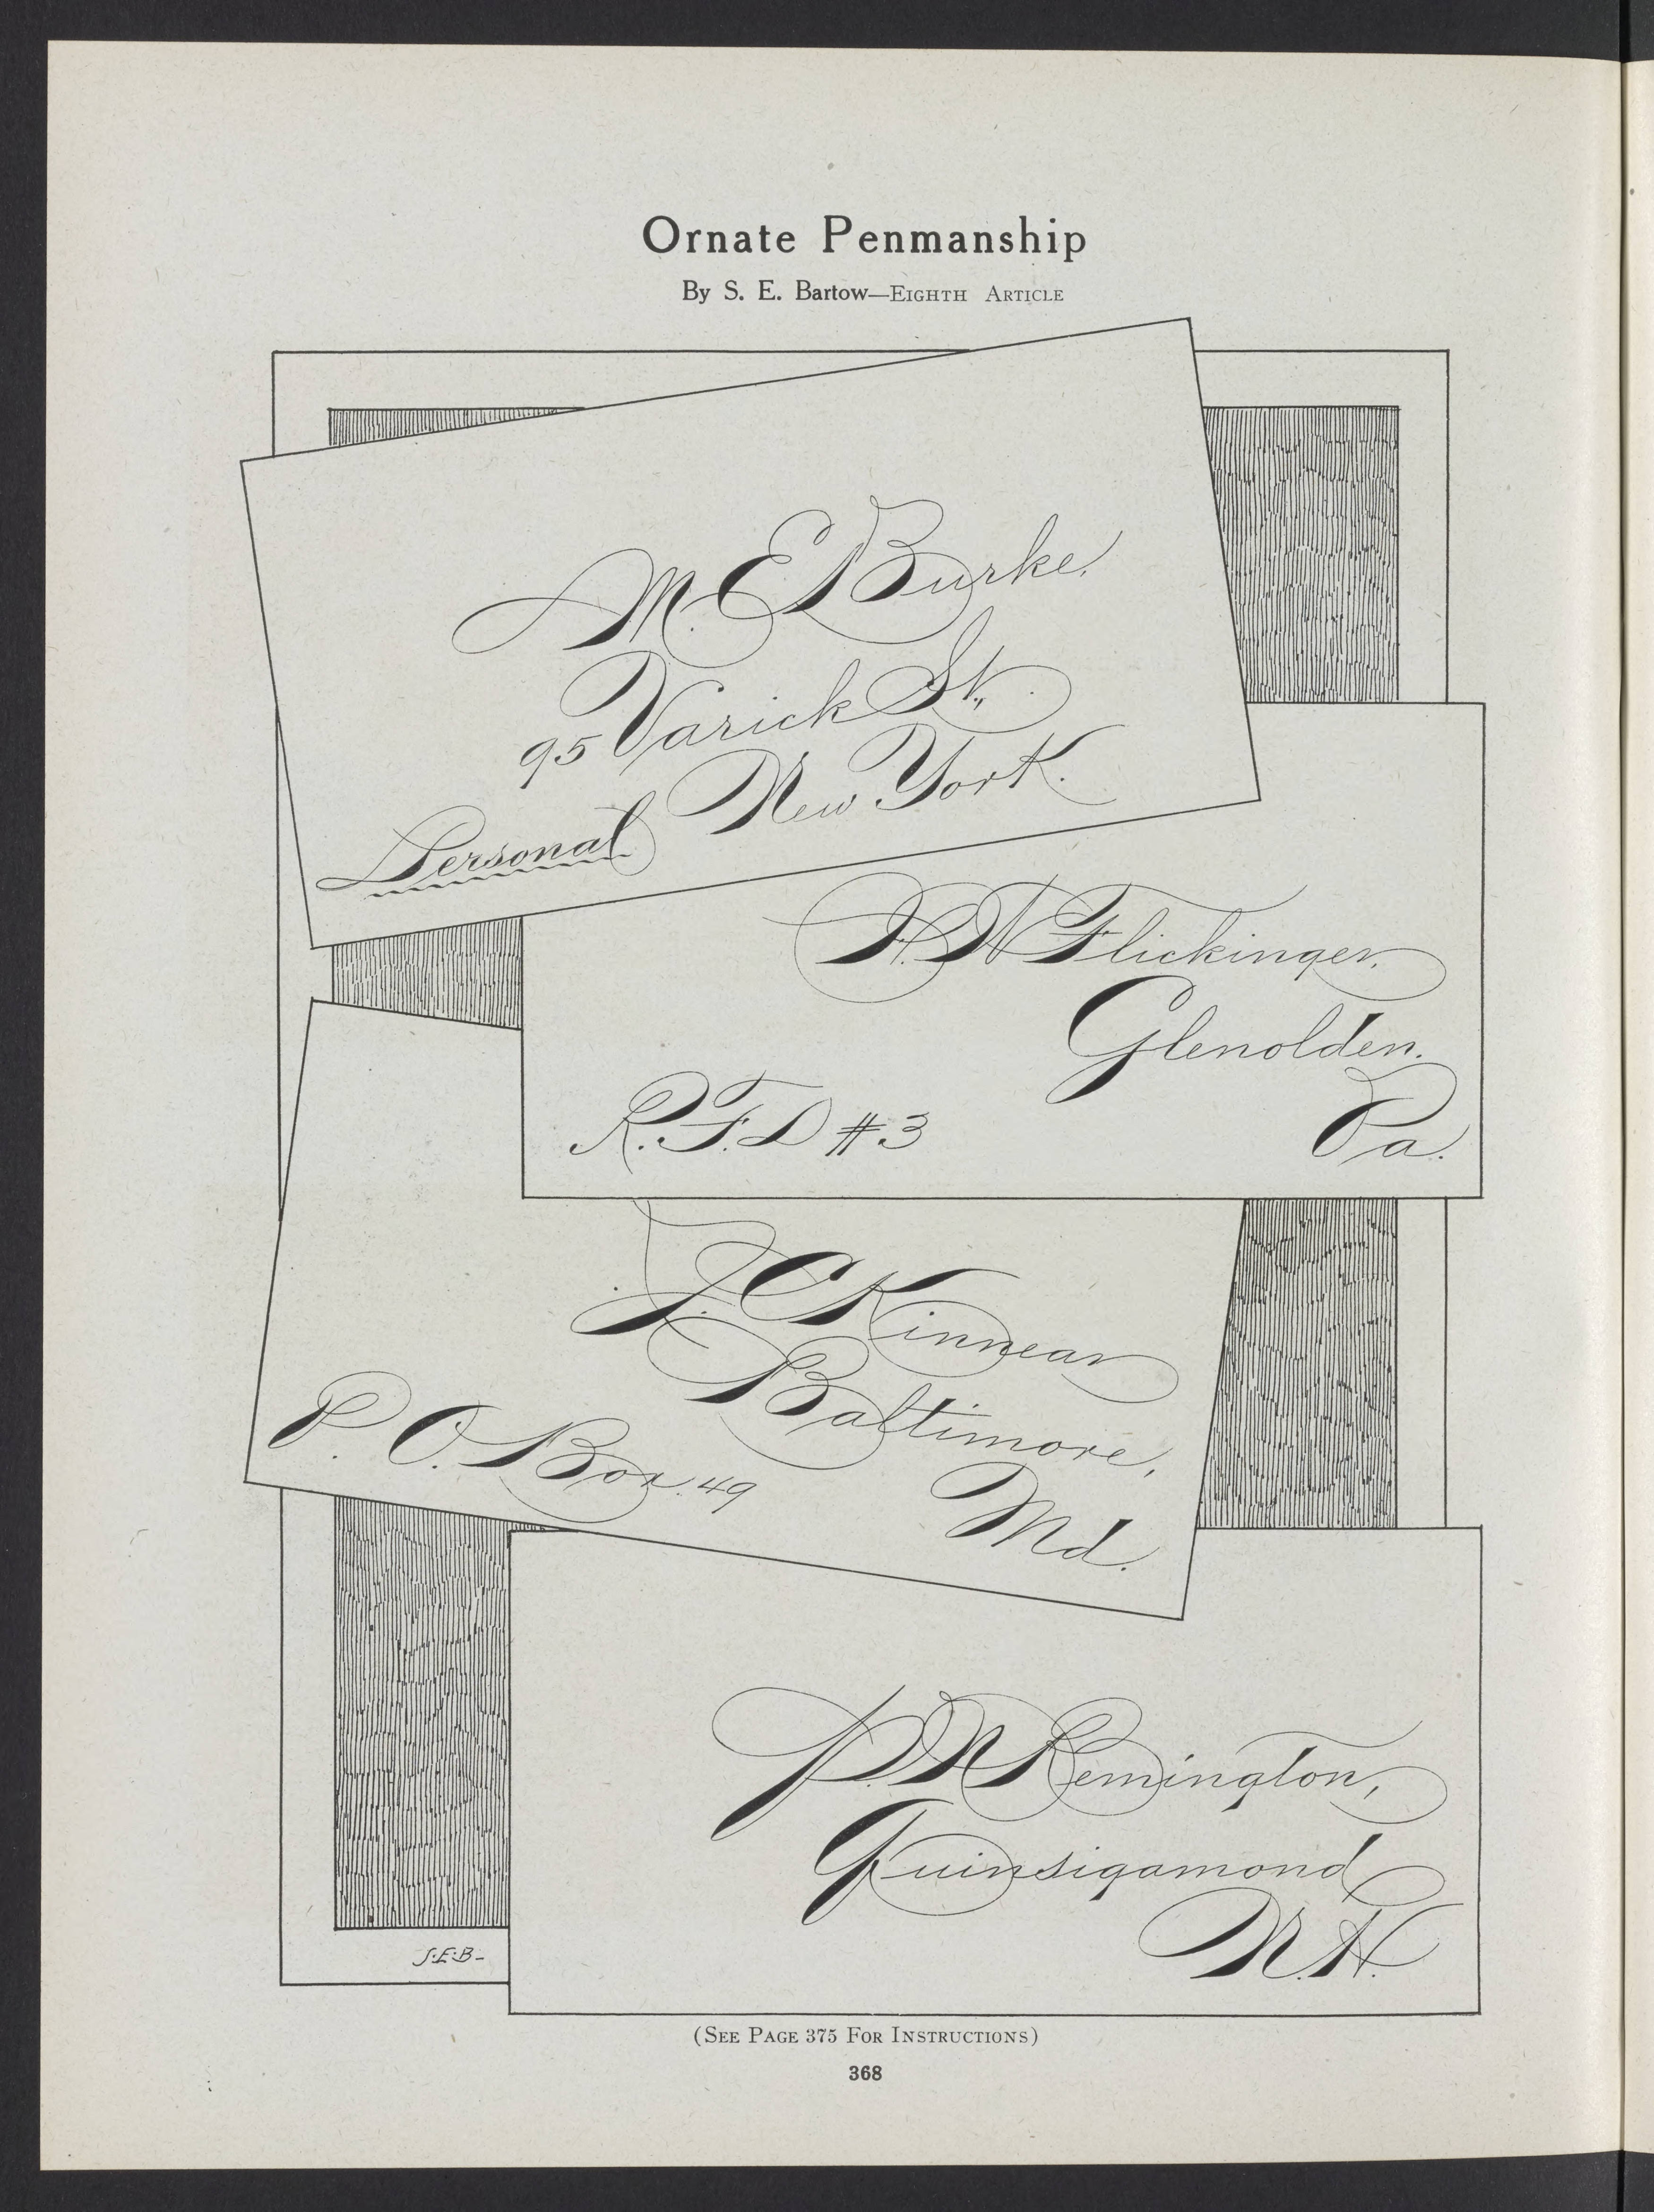 Ornate Penmanship
By S. E. Bartow—Eighth Article
M. E. Burke.
95 Varick St.,
New York.
Personal
H. W. Flickinger.
Glenolden.
R. F. D #3
Pa.
J. C. Kinnear
Baltimore,
P. O. Box. 49
Md.
P. W. Remington,
Quinsigamond
N. H.
S.E.B-
(See Page 375 For Instructions)
368